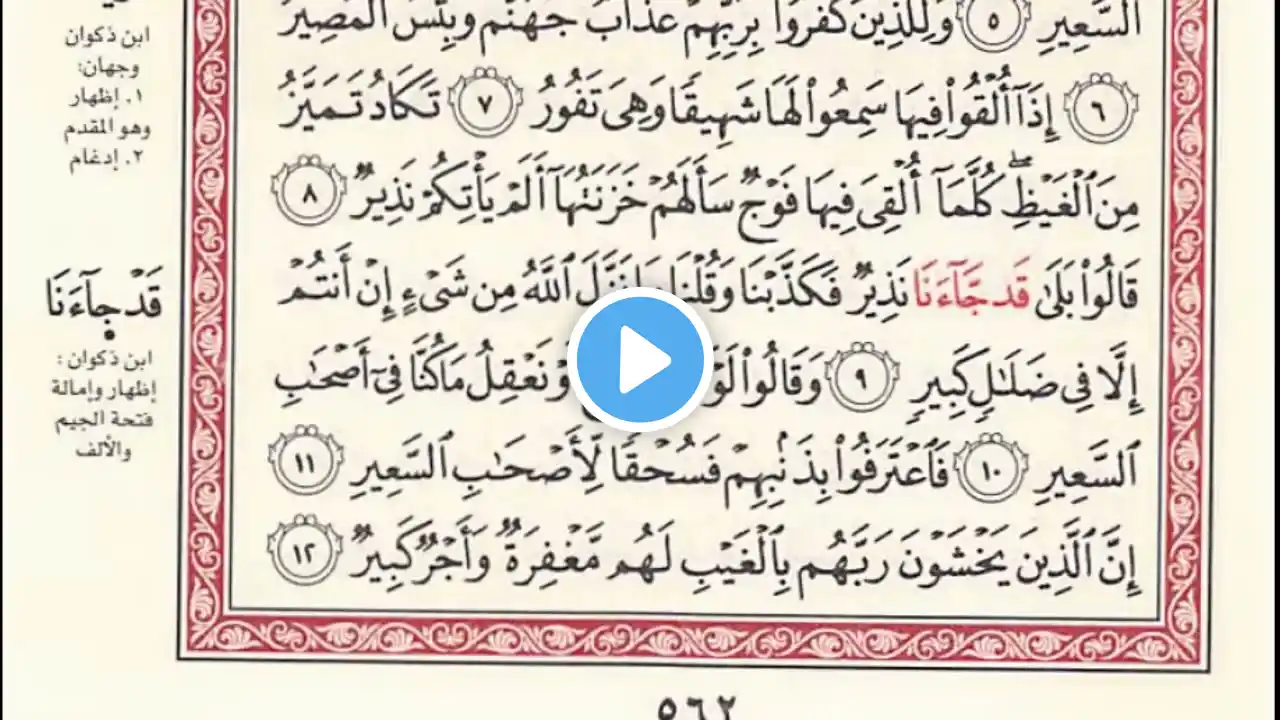 ٱلسَّعِيرِ ٥ وَلِلَّذِينَ كَفَرُوا۟ بِرَبِّهِمْ عَذَابُ جَهَنَّمَ وَبِئْسَ ٱلْمَصِيرُ
٦ إِذَآ أُلْقُوا۟ فِيهَا سَمِعُوا۟ لَهَا شَهِيقًا وَهِىَ تَفُورُ ٧ تَكَادُ تَمَيَّزُ
مِنَ ٱلْغَيْظِ ۖ كُلَّمَآ أُلْقِىَ فِيهَا فَوْجٌ سَأَلَهُمْ خَزَنَتُهَآ أَلَمْ يَأْتِكُمْ نَذِيرٌ ٨
قَالُوا۟ بَلَىٰ قَدْ جَّآءَنَا نَذِيرٌ فَكَذَّبْنَا وَقُلْنَا نَزَّلَ ٱللَّهُ مِن شَىْءٍ إِنْ أَنتُمْ
إِلَّا فِى ضَلَٰلٍ كَبِيرٍ ٩ وَقَالُوا۟ نَعْقِلُ مَا كُنَّا فِىٓ أَصْحَٰبِ
ٱلسَّعِيرِ ١٠ فَٱعْتَرَفُوا۟ بِذَنۢبِهِمْ فَسُحْقًا لِّأَصْحَٰبِ ٱلسَّعِيرِ ١١
إِنَّ ٱلَّذِينَ يَخْشَوْنَ رَبَّهُم بِٱلْغَيْبِ لَهُم مَّغْفِرَةٌ وَأَجْرٌ كَبِيرٌ ١٢
ابن ذكوان
وجهان:
١. إظهار
وهو المقدم
٢. إدغام
قَدْ جَآءَنَا
ابن ذكوان :
إظهار وإمالة
فتحة الجيم
والألف
٥٦٢